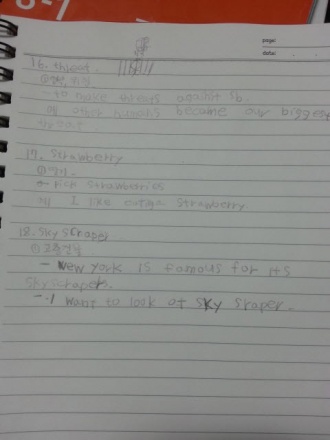 8-1
page:
date:
16. threat.
- to make threats against sb.
other humans become our biggest
threat
17. Strawberry
① 딸기.
pick strawberries
I like eating strawberry.
18. Sky Scraper
① 고층건물
- New york is famous for its
Skyscrapers.
- I want to look at sky sraper.